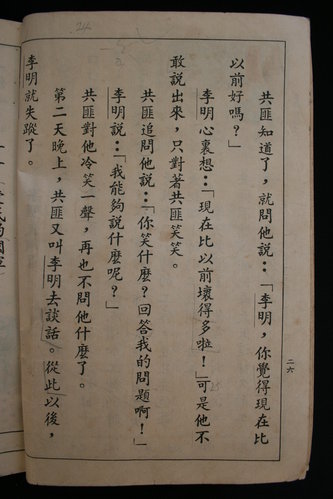 共匪知道了，就問他說：「李明，你覺得現在比
以前好嗎？」
李明心裏想：「現在比以前壞得多啦！」可是他不
敢說出來，只對著共匪笑笑。
共匪追問他說：「你笑什麼？回答我的問題啊！」
李明說：「我能夠說什麼呢？」
共匪對他冷笑一聲，再也不問他什麼了。
第二天晚上，共匪又叫李明去談話。從此以後，
李明就失蹤了。
二六